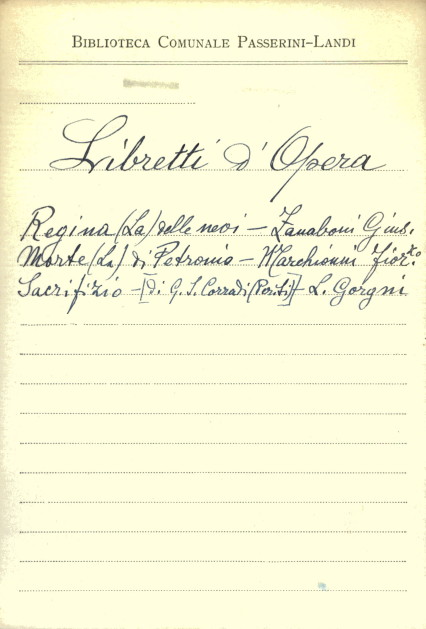 BIBLIOTECA COMUNALE PASSERINI-LANDI
Libretti d'Opera
Regina (La) delle nevi – Zanaboni Gius.
Morte (La) di Petronio – Marchionni
Sacrifizio – [di G. S. Corradi ] – L. Gorgni